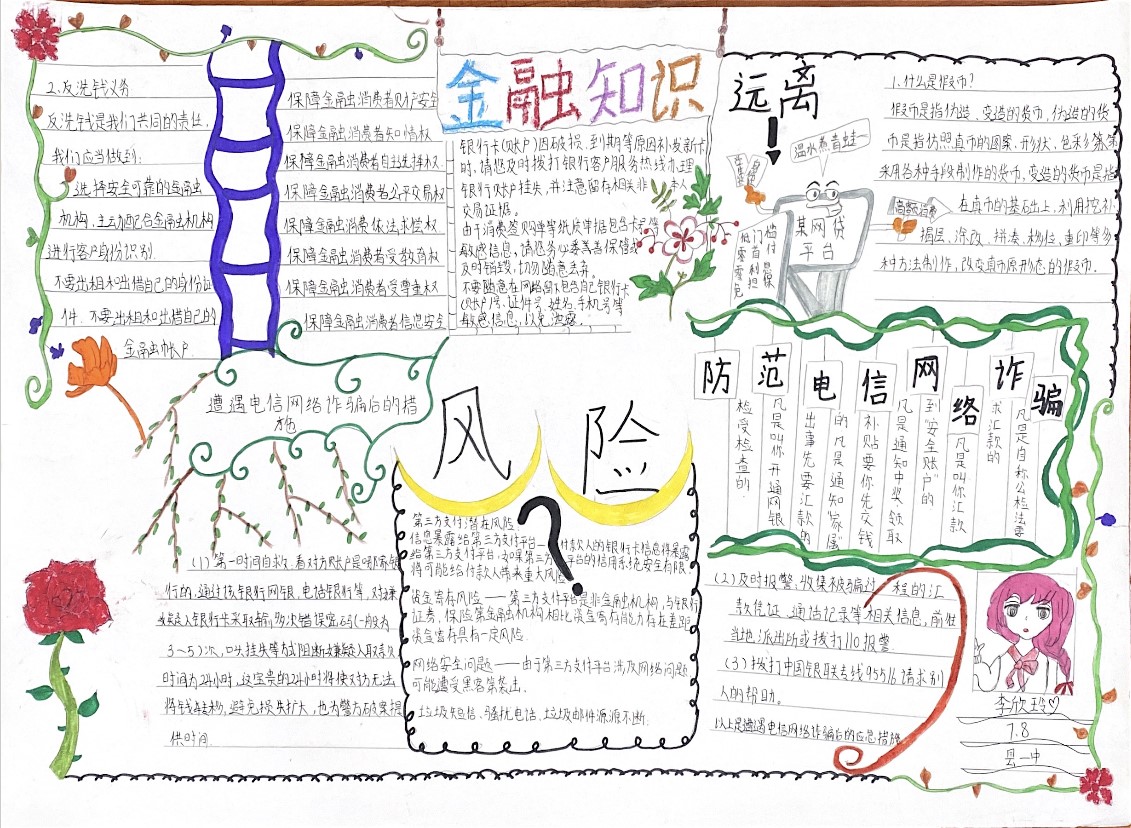 金融知识
2.反洗钱义务
反洗钱是我们共同的责任.
我们应当做到:
选择安全可靠的金融
机构,主动配合金融机构
进行客户身份识别.
不要出租和出借自己的身份证
件.不要出租和出借自己的
金融帐户.
保障金融消费者财产安全
保障金融消费者知情权
保障金融消费者自主选择权
保障金融消费者公平交易权
保障金融消费者依法求偿权
保障金融消费者受教育权
保障金融消费者受尊重权
保障金融消费者信息安全
银行卡(账户)因破损、到期等原因补发新卡
时,请您及时拨打银行客户服务热线办理
银行账户挂失,并注意留存相关非本人
交易证据。
由于消费签购单等纸质单据包含卡号等
敏感信息,请您务必妥善保管或
及时销毁,切勿随意丢弃。
不要随意在网络留下包含自己银行卡
(账户)号、证件号、姓名、手机号等
敏感信息,以免泄露.
远离!
温水煮青蛙
某网贷
平台
高额消费
1.什么是假币?
假币是指伪造、变造的货币,伪造的货
币是指仿照真币的图案、形状、色彩等
采用各种手段制作的货币,变造的货币是指
在真币的基础上,利用挖补、
揭层、涂改、拼凑、移位、重印等多
种方法制作,改变真币原形态的假币.
防范电信网络诈骗
凡是自称公检法要
求汇款的
凡是叫你汇款
到"安全账户"的
凡是通知中奖、领取
补贴要你先交钱
的凡是通知"家属"
出事先要汇款的
凡是叫你开通网银
检受检查的.
遭遇电信网络诈骗后的措
施
(1)第一时间自救.看对方账户是哪家银
行的,通过该银行网银、电话银行等,对嫌
疑人银行卡采取输多次错误密码(一般为
3~5)次,口头挂失等方式阻断嫌疑人取款
时间为24小时,这宝贵的24小时将使对方无法
将钱转移,避免损失扩大,也为警方破案提
供时间.
风险?
第三方支付潜在风险
信息暴露给第三方支付平台——付款人的银行卡信息将暴露
给第三方支付平台,如果第三方平台的信用系统安全有限
将可能给付款人带来重大风险
资金寄存风险——第三方支付平台是非金融机构,与银行
证券、保险等金融机构相比资金寄存能力存在差距
资金寄存具有一定风险.
网络安全问题——由于第三方支付平台涉及网络问题
可能遭受黑客等袭击.
垃圾短信、骚扰电话、垃圾邮件源源不断.
(2)及时报警、收集被骗过程的汇
款凭证、通话记录等相关信息,前往
当地派出所或拨打110报警.
(3)拨打中国银联专线95516请求别
人的帮助.
以上是遭遇电信网络诈骗后的应急措施
李欣玲♡
7.8
县一中